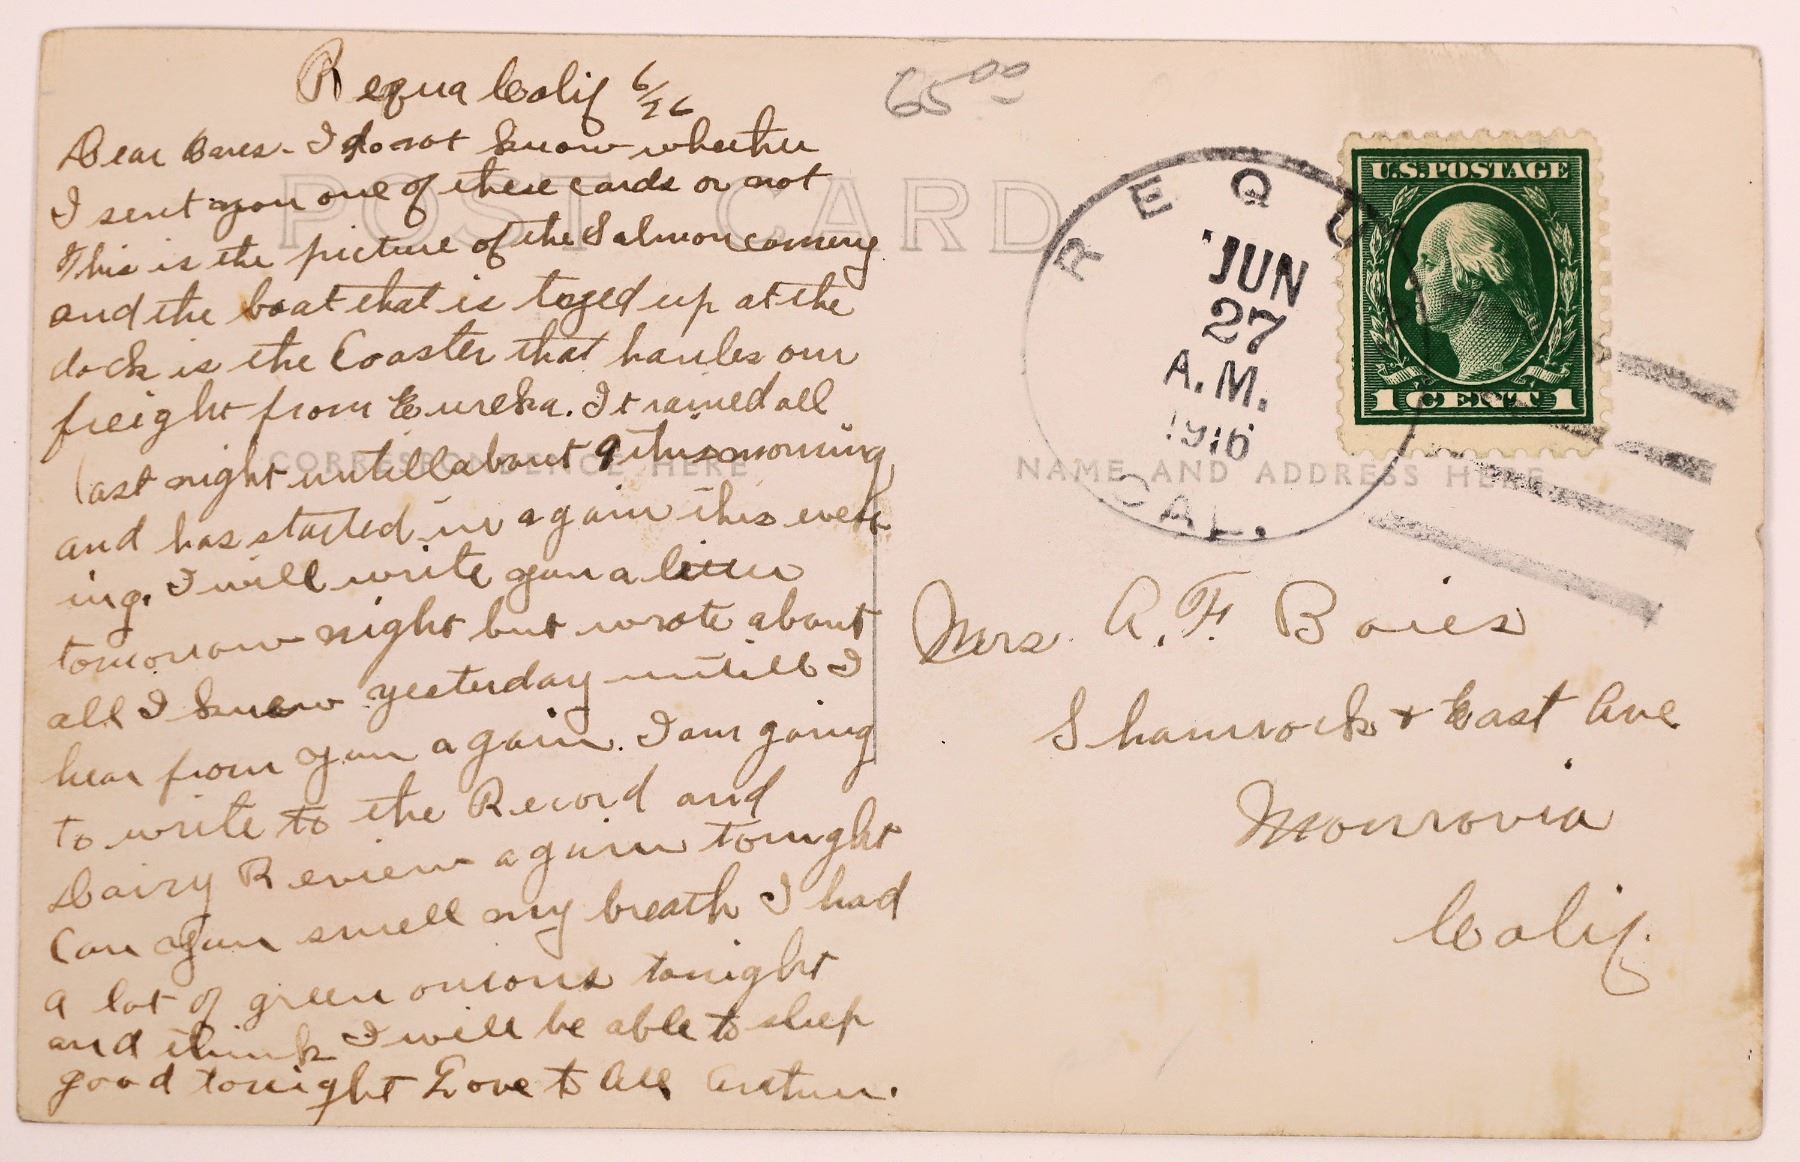 Requa Calif 6/26
Dear Bares - I do not know whether
I sent you one of these cards or not
This is the picture of the Salmon cannery
and the boat that is tyed up at the
dock is the Coaster that haules our
freight from Eureka. It rained all
last night untill about 9 this morning
and has started in again this even
ing. I will write you a letter
tomorrow night but wrote about
all I knew yesterday untill I
hear from you again. I am going
to write to the Record and
Dairy Review again tonight
Can you smell my breath I had
a lot of green onions tonight
and think I will be able to sleep
good tonight Love to All Arthur.
65 00
POST CARD
CORRESPONDENCE HERE
NAME AND ADDRESS HERE
REQUA
JUN
27
A.M.
1916
CAL.
U.S. POSTAGE
1 CENT 1
Mrs. A. F. Baies
Shamrock & East Ave
Monrovia
Calif.